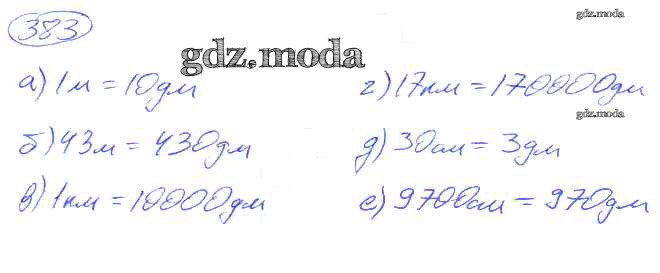 383
gdz.moda
gdz.moda
а) 1м = 10дм
г) 17км = 170000дм
gdz.moda
б) 43м = 430дм
д) 30см = 3дм
в) 1км = 10000дм
е) 9700см = 970дм